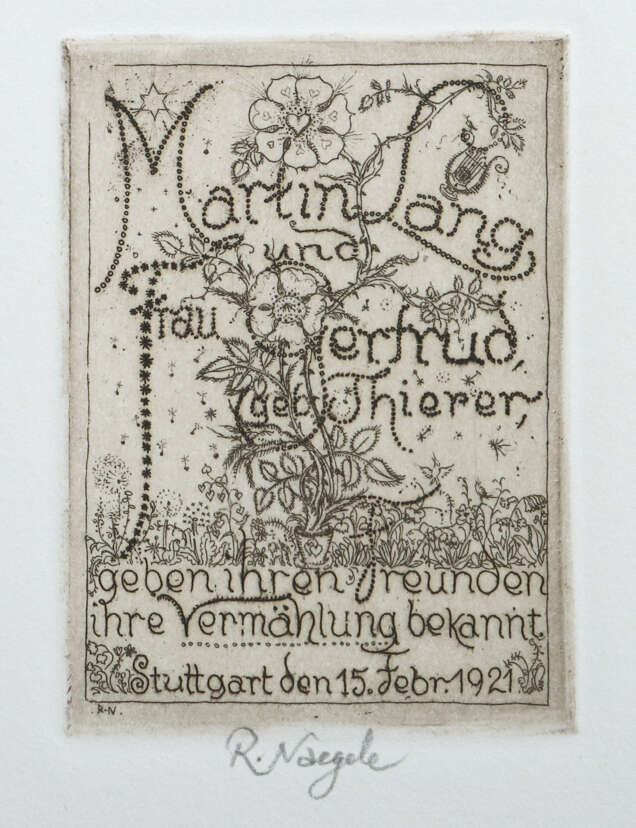 Martin Lang
und
Frau Gertrud,
geb. Thierer,
geben ihren Freunden
ihre Vermählung bekannt.
Stuttgart den 15. Febr. 1921
R-N.
R. Naegele